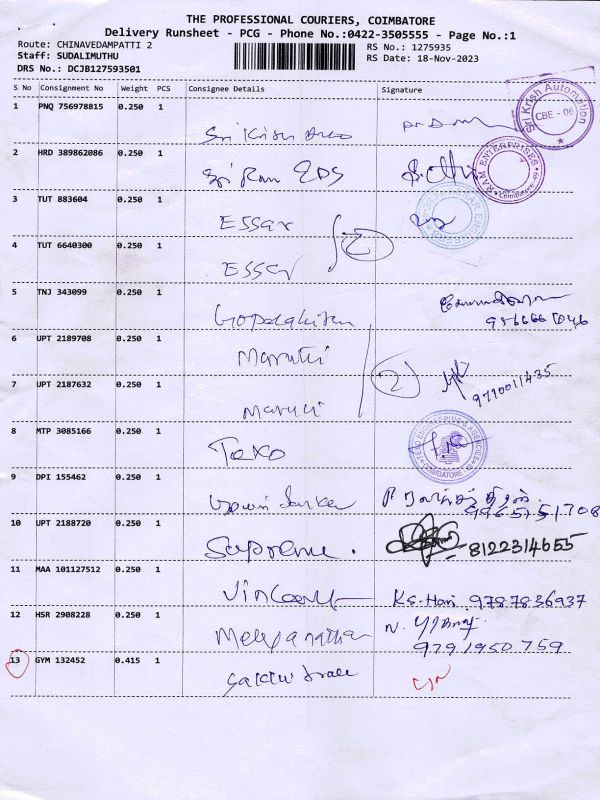 THE PROFESSIONAL COURIERS, COIMBATORE
Delivery Runsheet - PCG - Phone No.:0422-3505555 - Page No.:1
Route: CHINAVEDAMPATTI 2
RS No.: 1275935
Staff: SUDALIMUTHU
RS Date: 18-Nov-2023
DRS No.: DCJB127593501
S No Consignment No Weight PCS Consignee Details Signature
1 PNQ 756978815 0.250 1 Sri Krish
Sri Krish Automation CBE - 06
2 HRD 389862086 0.250 1 Sri Ram EDS
RAM ENTERPRISES Coimbatore
3 TUT 883604 0.250 1 Essar
2
4 TUT 6640300 0.250 1 Essar
5 TNJ 343099 0.250 1 Gopalakrishn
6 UPT 2189708 0.250 1 Maruthi
2
9790011435
7 UPT 2187632 0.250 1 Maruthi
8 MTP 3085166 0.250 1 Texo
ENGINEERING & AGENCIES COIMBATORE
9 DPI 155462 0.250 1
9965151708
10 UPT 2188720 0.250 1 Supreme. 8122314655
11 MAA 101127512 0.250 1 Ks. Hari 9787836937
12 HSR 2908228 0.250 1 Meyyanathan
9791950759
13 GYM 132452 0.415 1